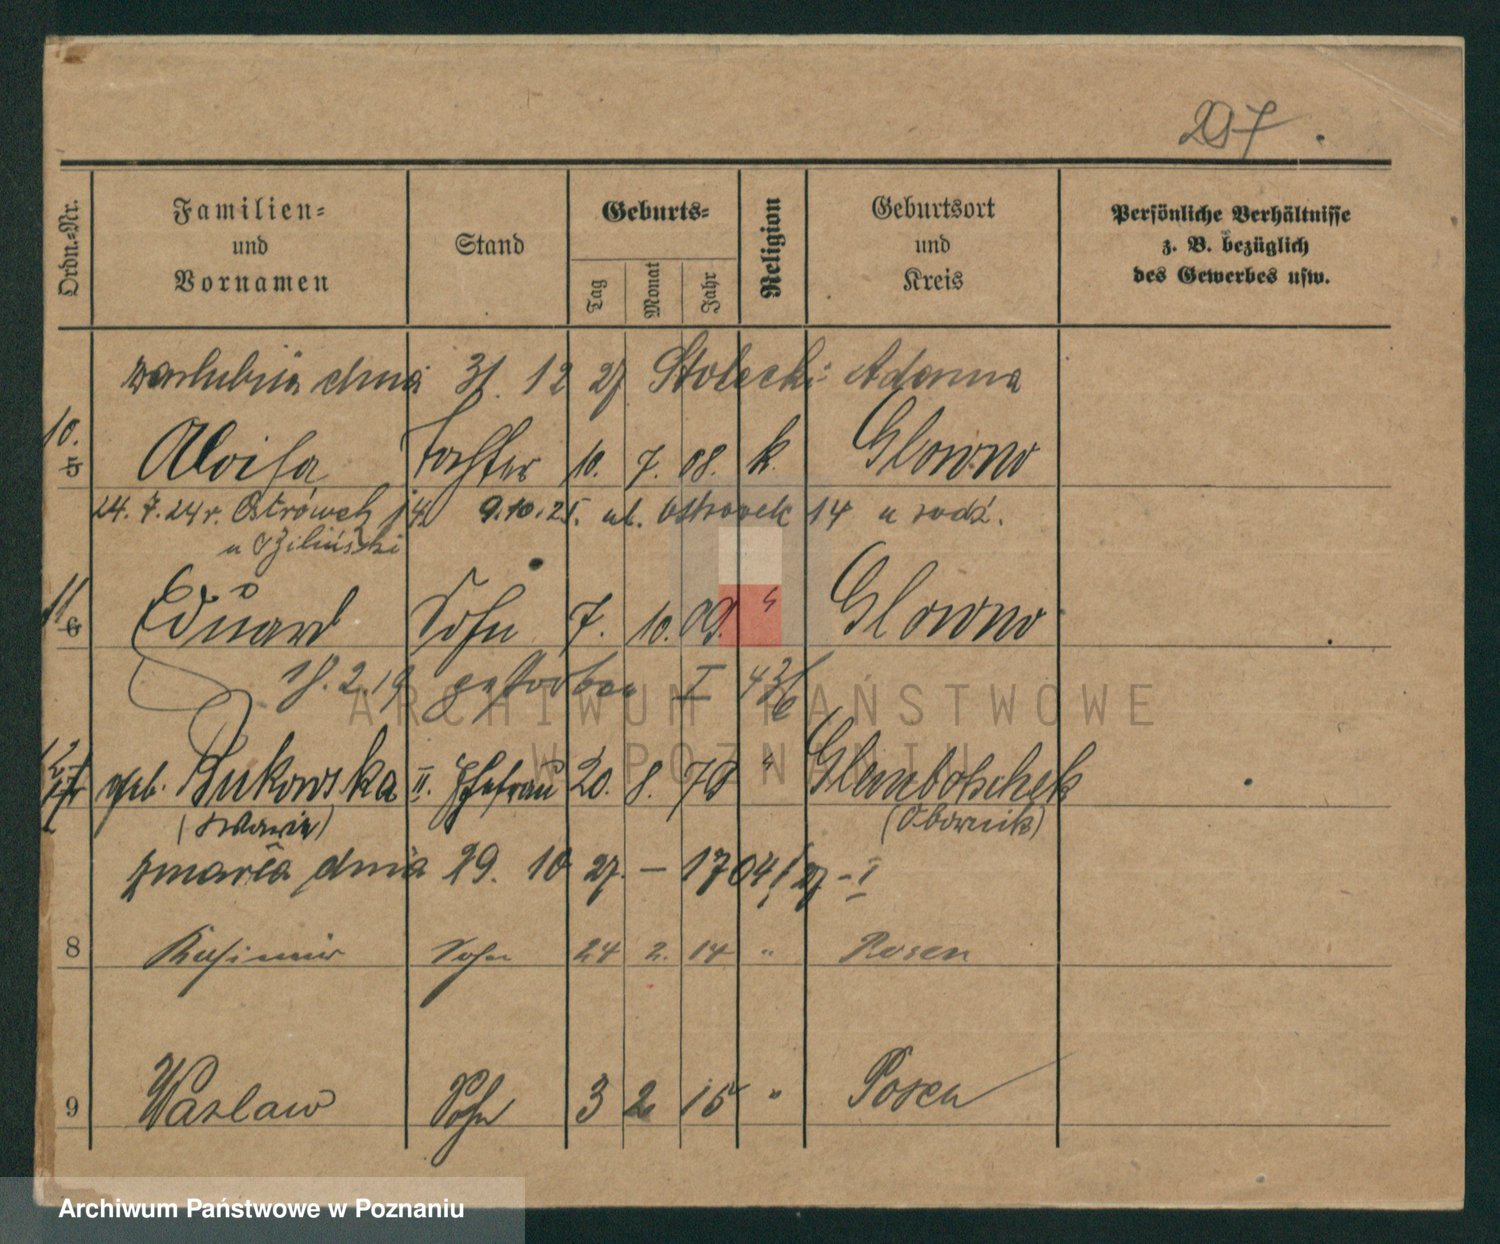 297.
Ordn.-Nr.
Familien-
und
Vornamen
Stand
Geburts-
Tag
Monat
Jahr
Religion
Geburtsort
und
Kreis
Persönliche Verhältnisse
z. B. bezüglich
des Gewerbes usw.
dnia 31. 12 27 Stolecki Adama
10. 5 Aloisa Tochter 10. 7. 08. k. Glowno
24. 7. 24 r. Ostrówek 9.10.25. ul. Ostrowek 14 u rodź.
u Zieliński
11 6 Eduard Sohn 7. 10. 09. " Glowno
18. 2. 19 gestorben I 436
12 7 geb. Bukowska II. Ehefrau 20. 8. 78 " Glembotschek
(Maria) (Obornik)
zmarła dnia 29. 10 27. – 1704/27 – I
8 Kasimir Sohn 24 2. 14 " Posen
9 Waslaw Sohn 3 2 15 " Posen
ARCHIWUM PAŃSTWOWE
W POZNANIU
Archiwum Państwowe w Poznaniu